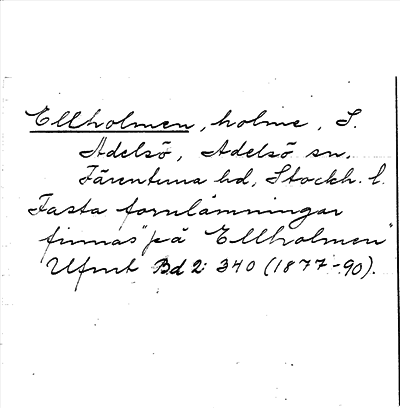 Ellholmen, holme, S.
Adelsö, Adelsö sn.
Färentuna hd, Stockh. l.
Fasta fornlämningar
finnas "på Ellholmen"
Ufmt Bd 2: 340 (1877-90).